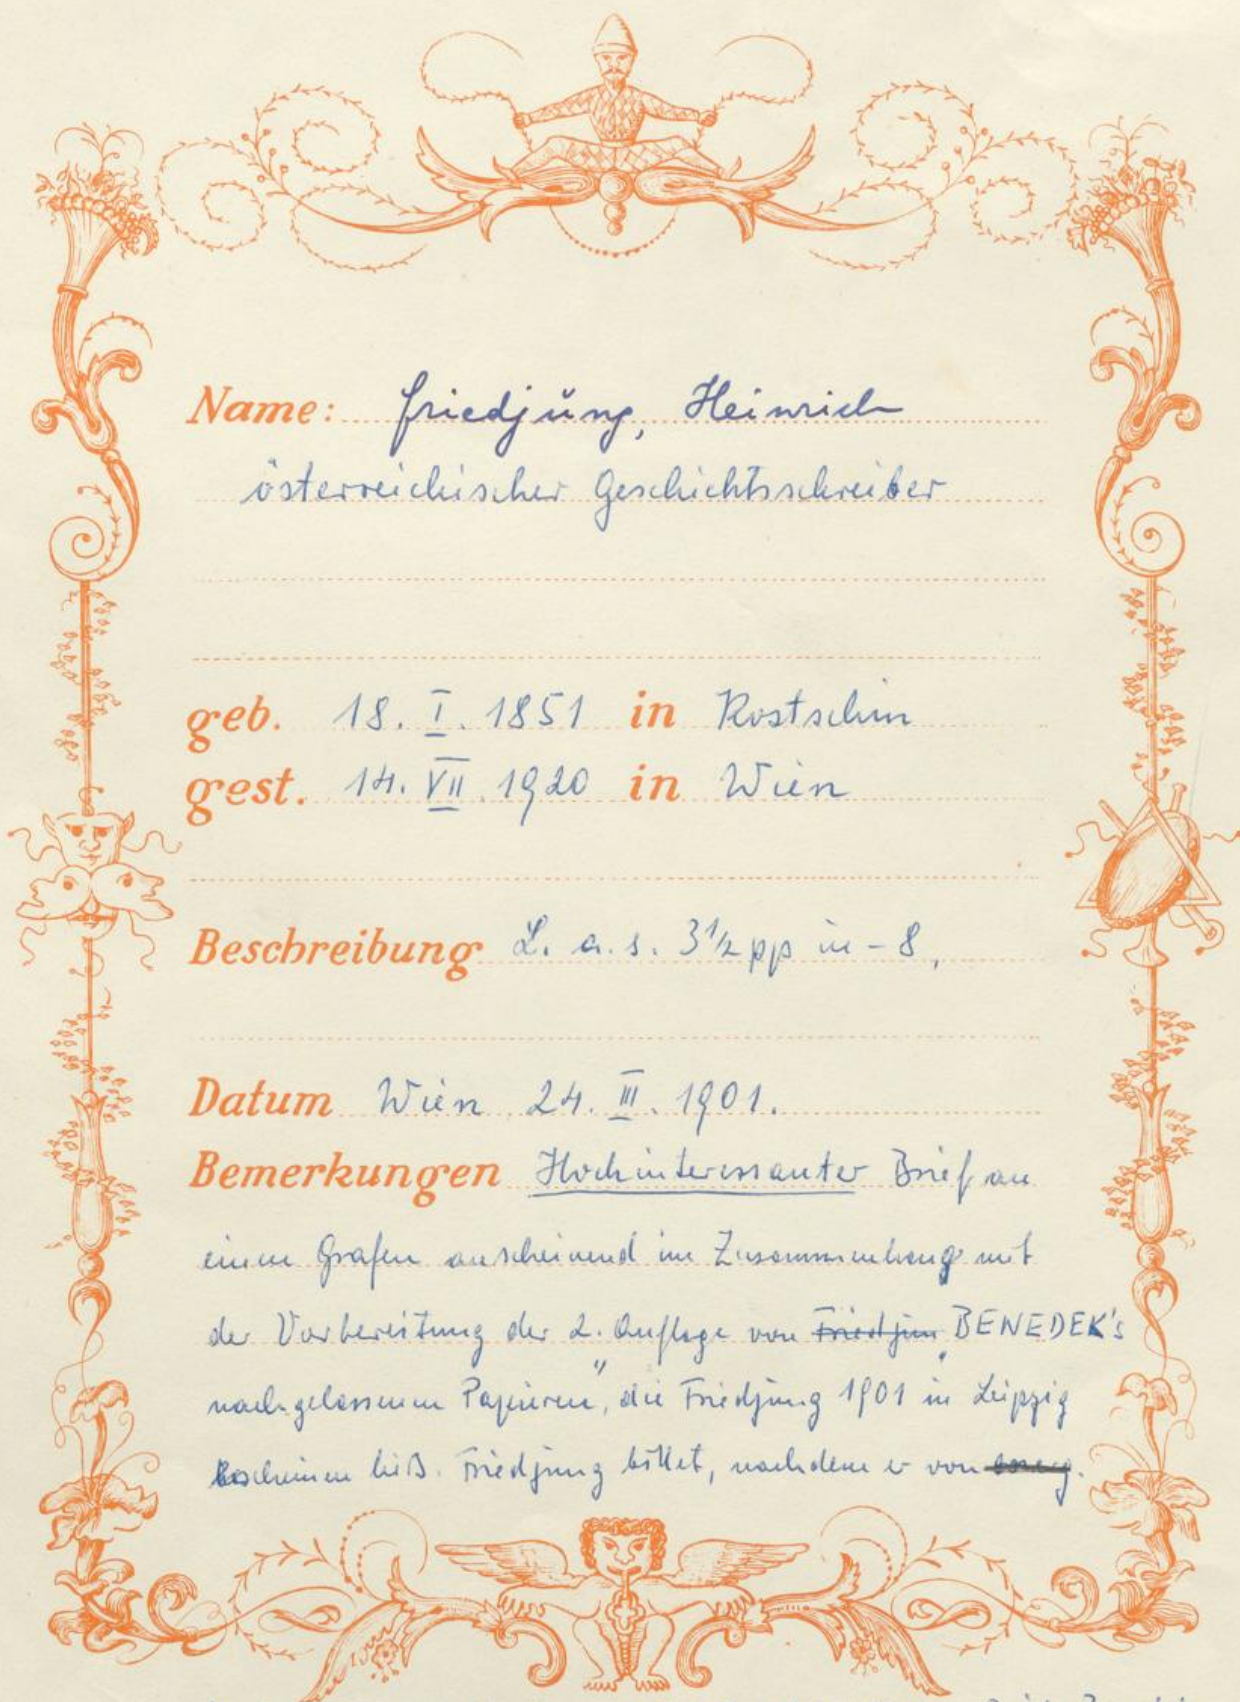 Name: Friedjung, Heinrich
österreichischer Geschichtsschreiber
geb. 18. I. 1851 in Rostschin
gest. 14. VII. 1920 in Wien
Beschreibung L. a. s. 3 1/2 pp in - 8,
Datum Wien 24. III. 1901.
Bemerkungen Hochinteressanter Brief an
einen Grafen anscheinend im Zusammenhang mit
der Vorbereitung der 2. Auflage von Friedjun „BENEDEK's
nachgelassenen Papieren", die Friedjung 1901 in Leipzig
erscheinen ließ. Friedjung bittet, nachdem er von